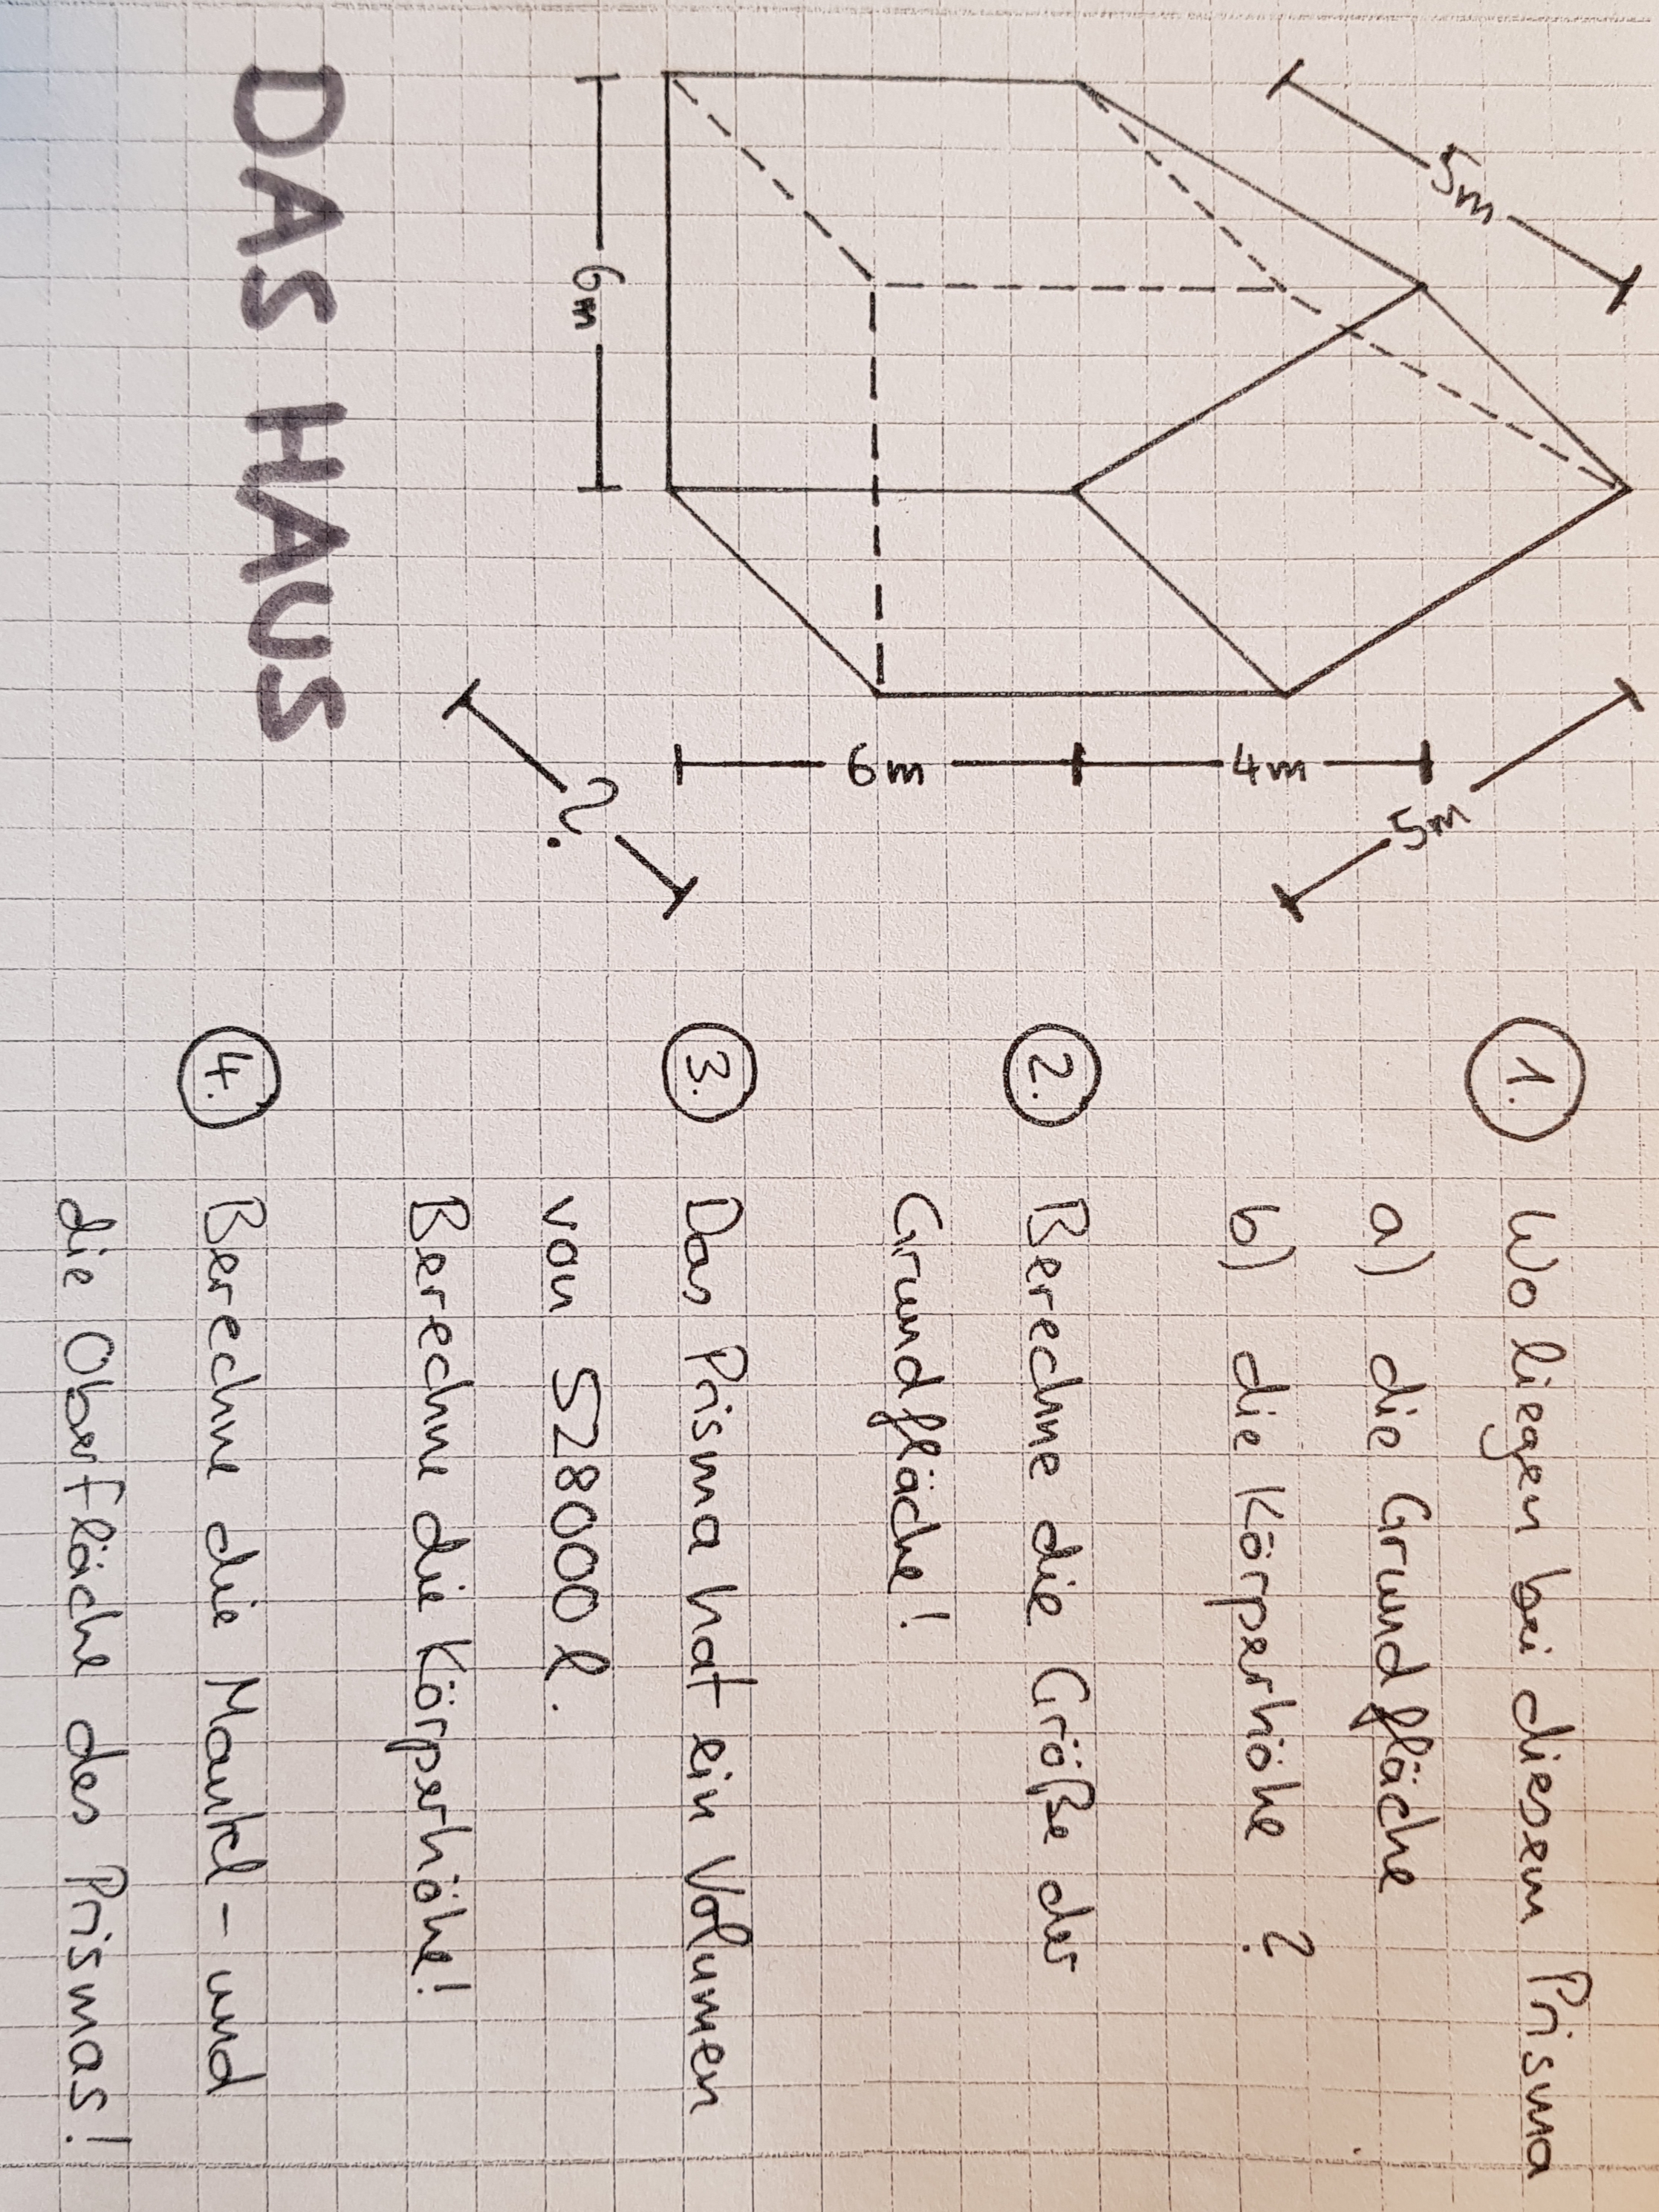 5m
5m
4m
6m
6m
?
DAS HAUS
1. Wo liegen bei diesem Prisma
a) die Grundfläche
b) die Körperhöhe ?
2. Berechne die Größe der
Grundfläche!
3. Das Prisma hat ein Volumen
von 528000 l.
Berechne die Körperhöhe!
4. Berechne die Mantel- und
die Oberfläche des Prismas!